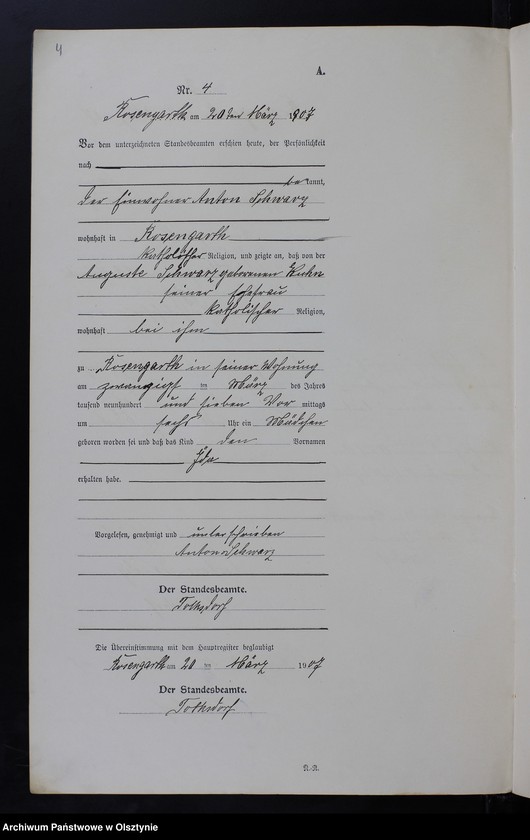 4
A.
Nr. 4
Rosengarth am 20ten März 1907
Vor dem unterzeichneten Standesbeamten erschien heute, der Persönlichkeit
nach
be kannt,
der Einwohner Anton Schwarz
wohnhaft in Rosengarth
katholischer Religion, und zeigte an, daß von der
Auguste Schwarz geborenen Kuhn
seiner Ehefrau
katholischer Religion,
wohnhaft bei ihm
zu Rosengarth in seiner Wohnung
am zwanzigst im März des Jahres
tausend neunhundert und sieben Vor mittags
um sechs Uhr ein Mädchen
geboren worden sei und daß das Kind den Vornamen
Ida
erhalten habe.
Vorgelesen, genehmigt und unterschrieben
Anton Schwarz
Der Standesbeamte.
Tolksdorf
Die Übereinstimmung mit dem Hauptregister beglaubigt
Rosengarth am 20 im März 1907
Der Standesbeamte.
Tolksdorf
A.-R.
Archiwum Państwowe w Olsztynie